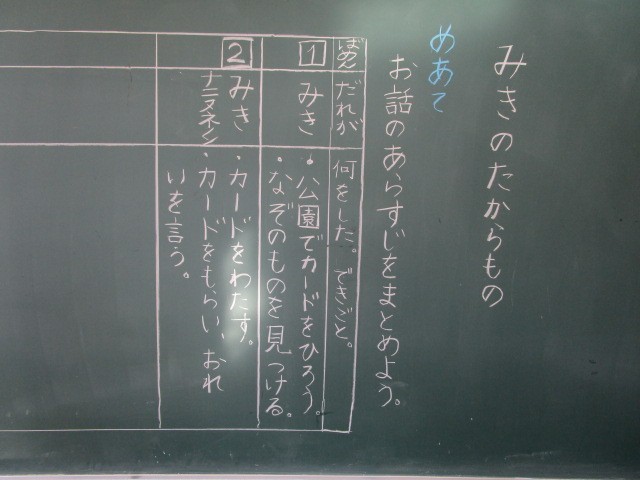 みきのたからもの
めあて
お話のあらすじをまとめよう。
ばめん
だれが
何をした。できごと。
1
みき
・公園でカードをひろう。
・なぞのものを見つける。
2
みき
・カードをわたす。
ナニヌネノン
・カードをもらい、おれ
いを言う。